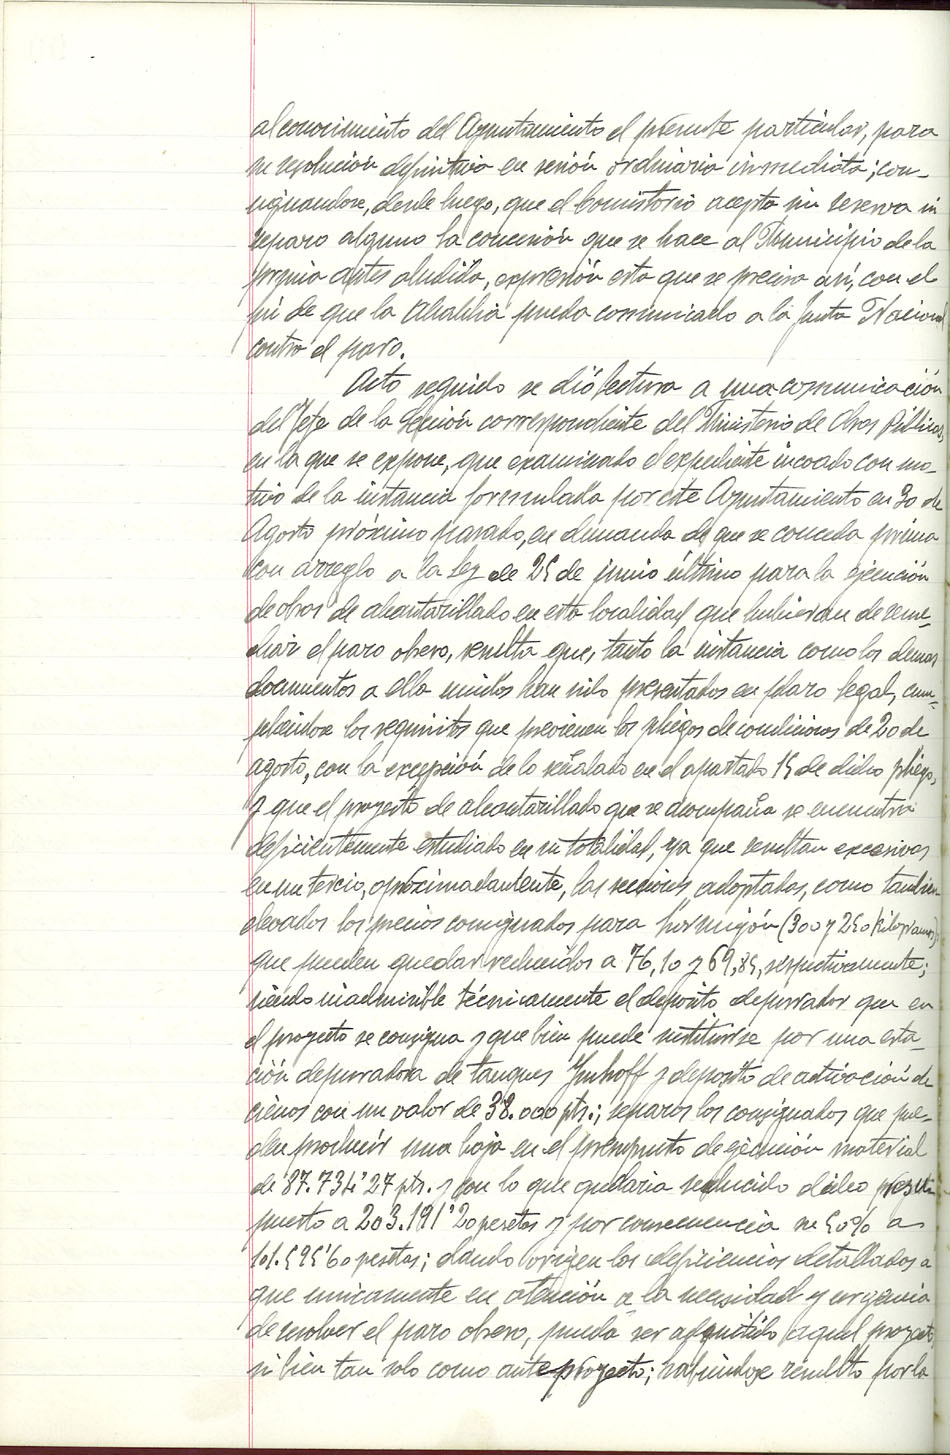 al conocimiento del Ayuntamiento el presente particular, para
su resolución definitiva en sesión ordinaria inmediata; con-
signandose, desde luego, que el Consistorio acepta sin reserva ni
reparo alguno la concesión que se hace al Municipio de la
prima antes aludida, expresión esta que se precisa asi, con el
fin de que la Alcaldia pueda comunicarlo a la Junta Nacional
contra el paro.
Acto seguido se dió lectura a una comunicación
del Jefe de la Sección correspondiente del Ministerio de Obras Públicas,
en la que se expone, que examinado el expediente incoado con mo-
tivo de la instancia formulada por este Ayuntamiento en 30 de
Agosto próximo pasado, en demanda de que se conceda prima
con arreglo a la Ley de 25 de junio último para la ejecución
de obras de alcantarillado en esta localidad que hubieran de reme-
diar el paro obrero, resulta que, tanto la instancia como los demas
documentos a ella unidos han sido presentados en plazo legal, cum-
pliendose los requisitos que previenen los pliegos de condiciones de 20 de
agosto, con la excepción de lo señalado en el apartado 15 de dicho pliego,
y que el proyecto de alcantarillado que se acompaña se encuentra
deficientemente estudiado en su totalidad, ya que resultan excesivas
en un tercio, aproximadamente, las secciones adoptadas, como tambien
elevados los precios consignados para hormigón (300 y 250 kilogramos)
que pueden quedar reducidos a 76,10 y 69,85, respectivamente;
siendo inadmisible técnicamente el depósito depurador que en
el proyecto se consigna y que bien puede sustituirse por una esta-
ción depuradora de tanques Imhoff y deposito de activación de
cienos con un valor de 38.000 pts.; reparos los consignados que pue-
den producir una baja en el presupuesto de ejecución material
de 87.734'27 pts. y con lo que quedaria reducido dicho presu-
puesto a 203.191'20 pesetas y por consecuencia su 50% a
101.595'60 pesetas; dando origen las deficiencias detalladas a
que unicamente en atención a la necesidad y urgencia
de resolver el paro obrero, pueda ser admitido aquel proyecto,
si bien tan solo como anteproyecto; habiendose resuelto por la